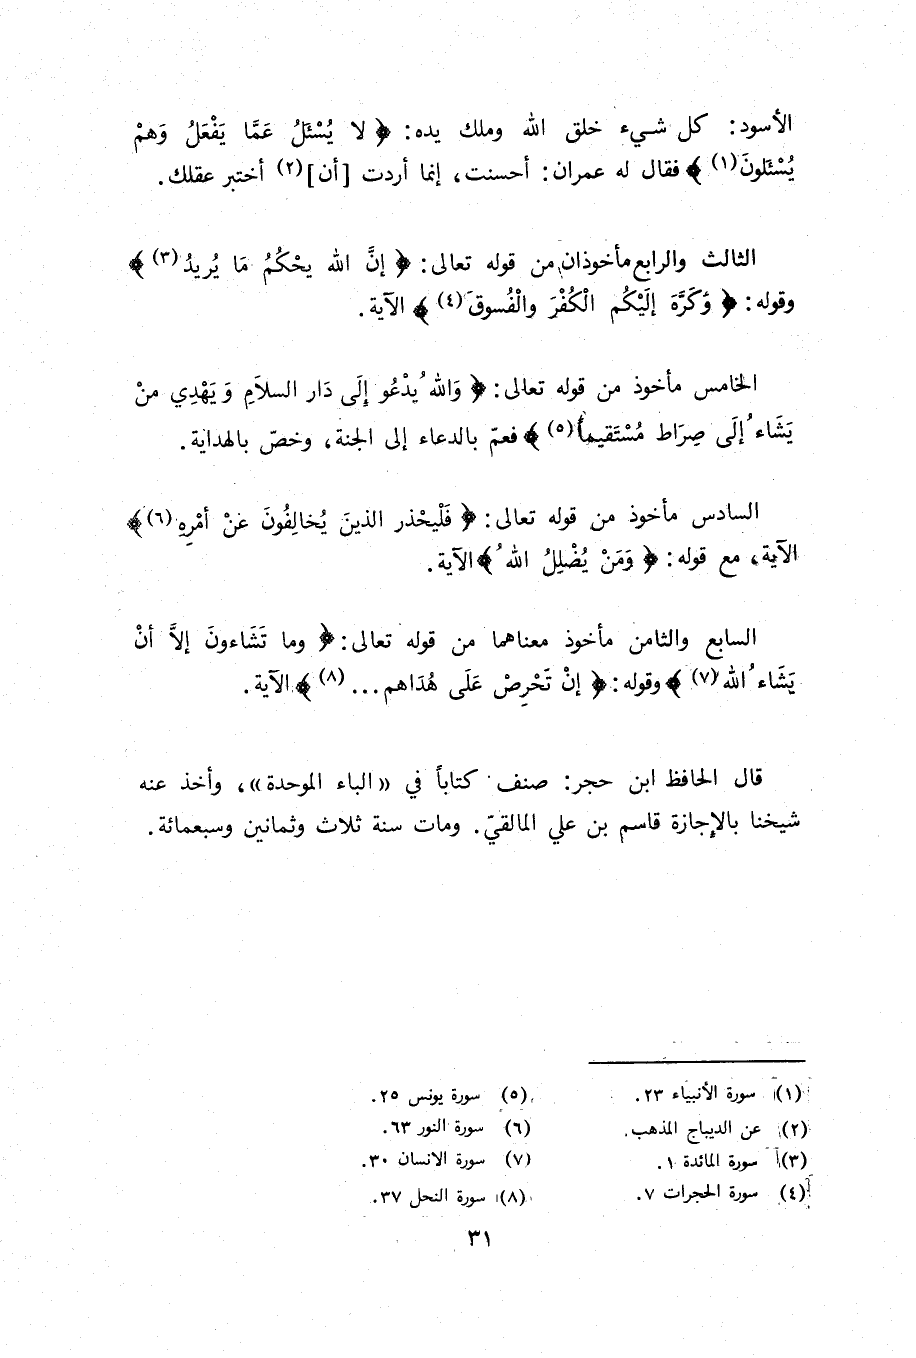 الأسود: كل شيء خلق الله وملك يده: ﴿ لا يُسْئَلُ عَمَّا يَفْعَلُ وَهمْ
يُسْئَلونَ(١) ﴾ فقال له عمران: أحسنت، إنما أردت [أن](٢) أختبر عقلك.
الثالث والرابع مأخوذان من قوله تعالى: ﴿ إنَّ الله يحْكُمُ مَا يُريدُ(٣) ﴾
وقوله: ﴿ وُكَرَّهَ إلَيْكُم الْكُفْرَ والْفُسوقَ(٤) ﴾ الآية.
الخامس مأخوذ من قوله تعالى: ﴿ وَاللهُ يدْعُو إلَى دَار السلاَمِ وَيَهْدِي منْ
يَشَاءُ إلَى صِرَاط مُسْتَقيماً(٥) ﴾ فعمّ بالدعاء إلى الجنة، وخصّ بالهداية.
السادس مأخوذ من قوله تعالى: ﴿ فَلْيحْذر الذينَ يُخالِفُونَ عَنْ أمْرِهِ(٦) ﴾
الآية، مع قوله: ﴿ وَمَنْ يُضْلِلُ اللهُ ﴾ الآية.
السابع والثامن مأخوذ معناهما من قوله تعالى: ﴿ وما تَشَاءونَ إلاَّ أنْ
يَشَاءُ الله(٧) ﴾ وقوله: ﴿ إنْ تَحْرِصْ عَلَى هُدَاهم...(٨) ﴾ الآية.
قال الحافظ ابن حجر: صنف كتاباً في «الباء الموحدة»، وأخذ عنه
شيخنا بالإجازة قاسم بن علي المالقيّ. ومات سنة ثلاث وثمانين وسبعمائة.
(١) سورة الأنبياء ٢٣.
(٢) عن الديباج المذهب.
(٣) سورة المائدة ١.
(٤) سورة الحجرات ٧.
(٥) سورة يونس ٢٥.
(٦) سورة النور ٦٣.
(٧) سورة الانسان ٣٠.
(٨) سورة النحل ٣٧.
٣١